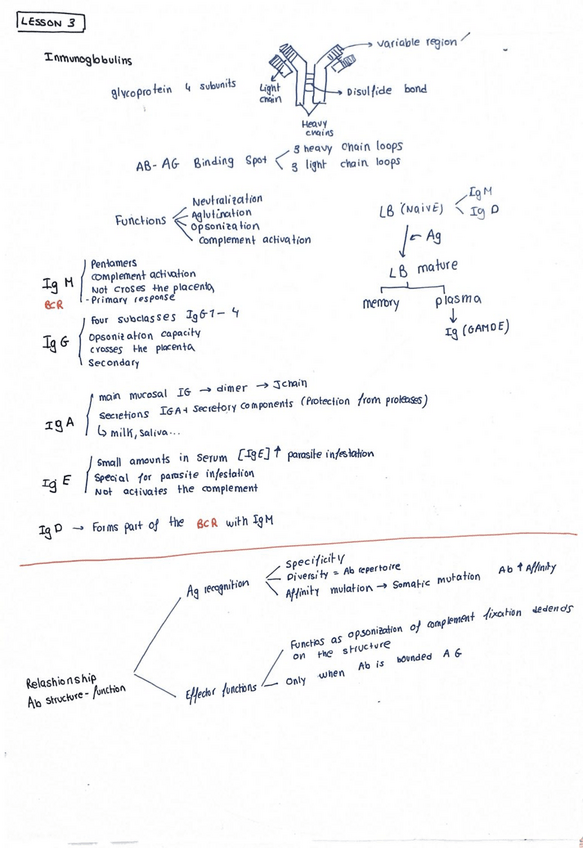 LESSON 3
Inmunoglobulins
variable region
glycoprotein 4 subunits
Light chain
Disulfide bond
Heavy chains
AB-AG Binding Spot
3 heavy chain loops
3 light chain loops
Functions
Neutralization
Aglutination
Opsonization
complement activation
LB (Naive)
IgM
IgD
Ag
LB mature
memory
plasma
Ig (GAMDE)
IgM
BCR
Pentamers
complement activation
Not croses the placenta
- Primary response
IgG
Four subclasses IgG1-4
Opsonization capacity
crosses the placenta
Secondary
IgA
main mucosal IG → dimer → Jchain
Secretions IGA + Secretory components (Protection from proteases)
↳ milk, saliva...
IgE
Small amounts in serum [IgE] ↑ parasite infestation
Special for parasite infestation
Not activates the complement
IgD → Forms part of the BCR with IgM
Relashionship
Ab structure-function
Ag recognition
Specificity
Diversity = Ab repertoire
Affinity mulation → Somatic mutation Ab ↑ Affinity
Effector functions
Functios as opsonization of complement fixation dedends
on the structure
Only when Ab is bounded AG